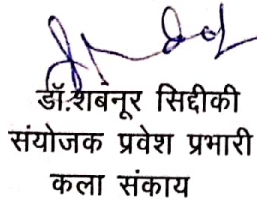 डॉ.शबनूर सिद्दीकी
संयोजक प्रवेश प्रभारी
कला संकाय